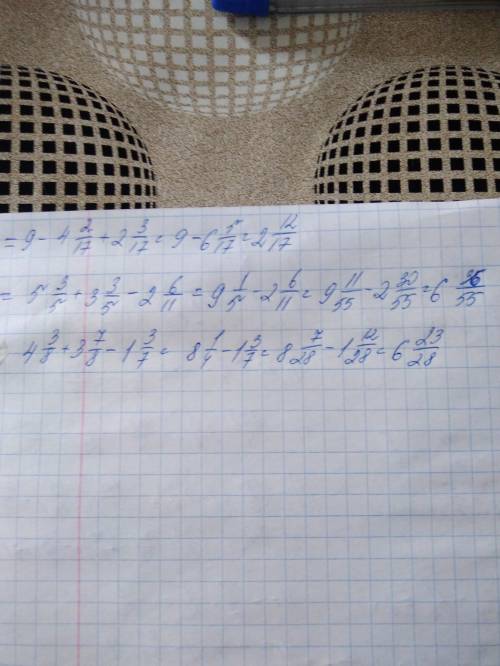 = 9 - 4 2/17 + 2 3/17 = 9 - 6 5/17 = 2 12/17
= 5 3/5 + 3 3/5 - 2 6/11 = 9 1/5 - 2 6/11 = 9 11/55 - 2 30/55 = 6 36/55
4 3/8 + 3 7/8 - 1 3/7 = 8 1/4 - 1 3/7 = 8 7/28 - 1 12/28 = 6 23/28